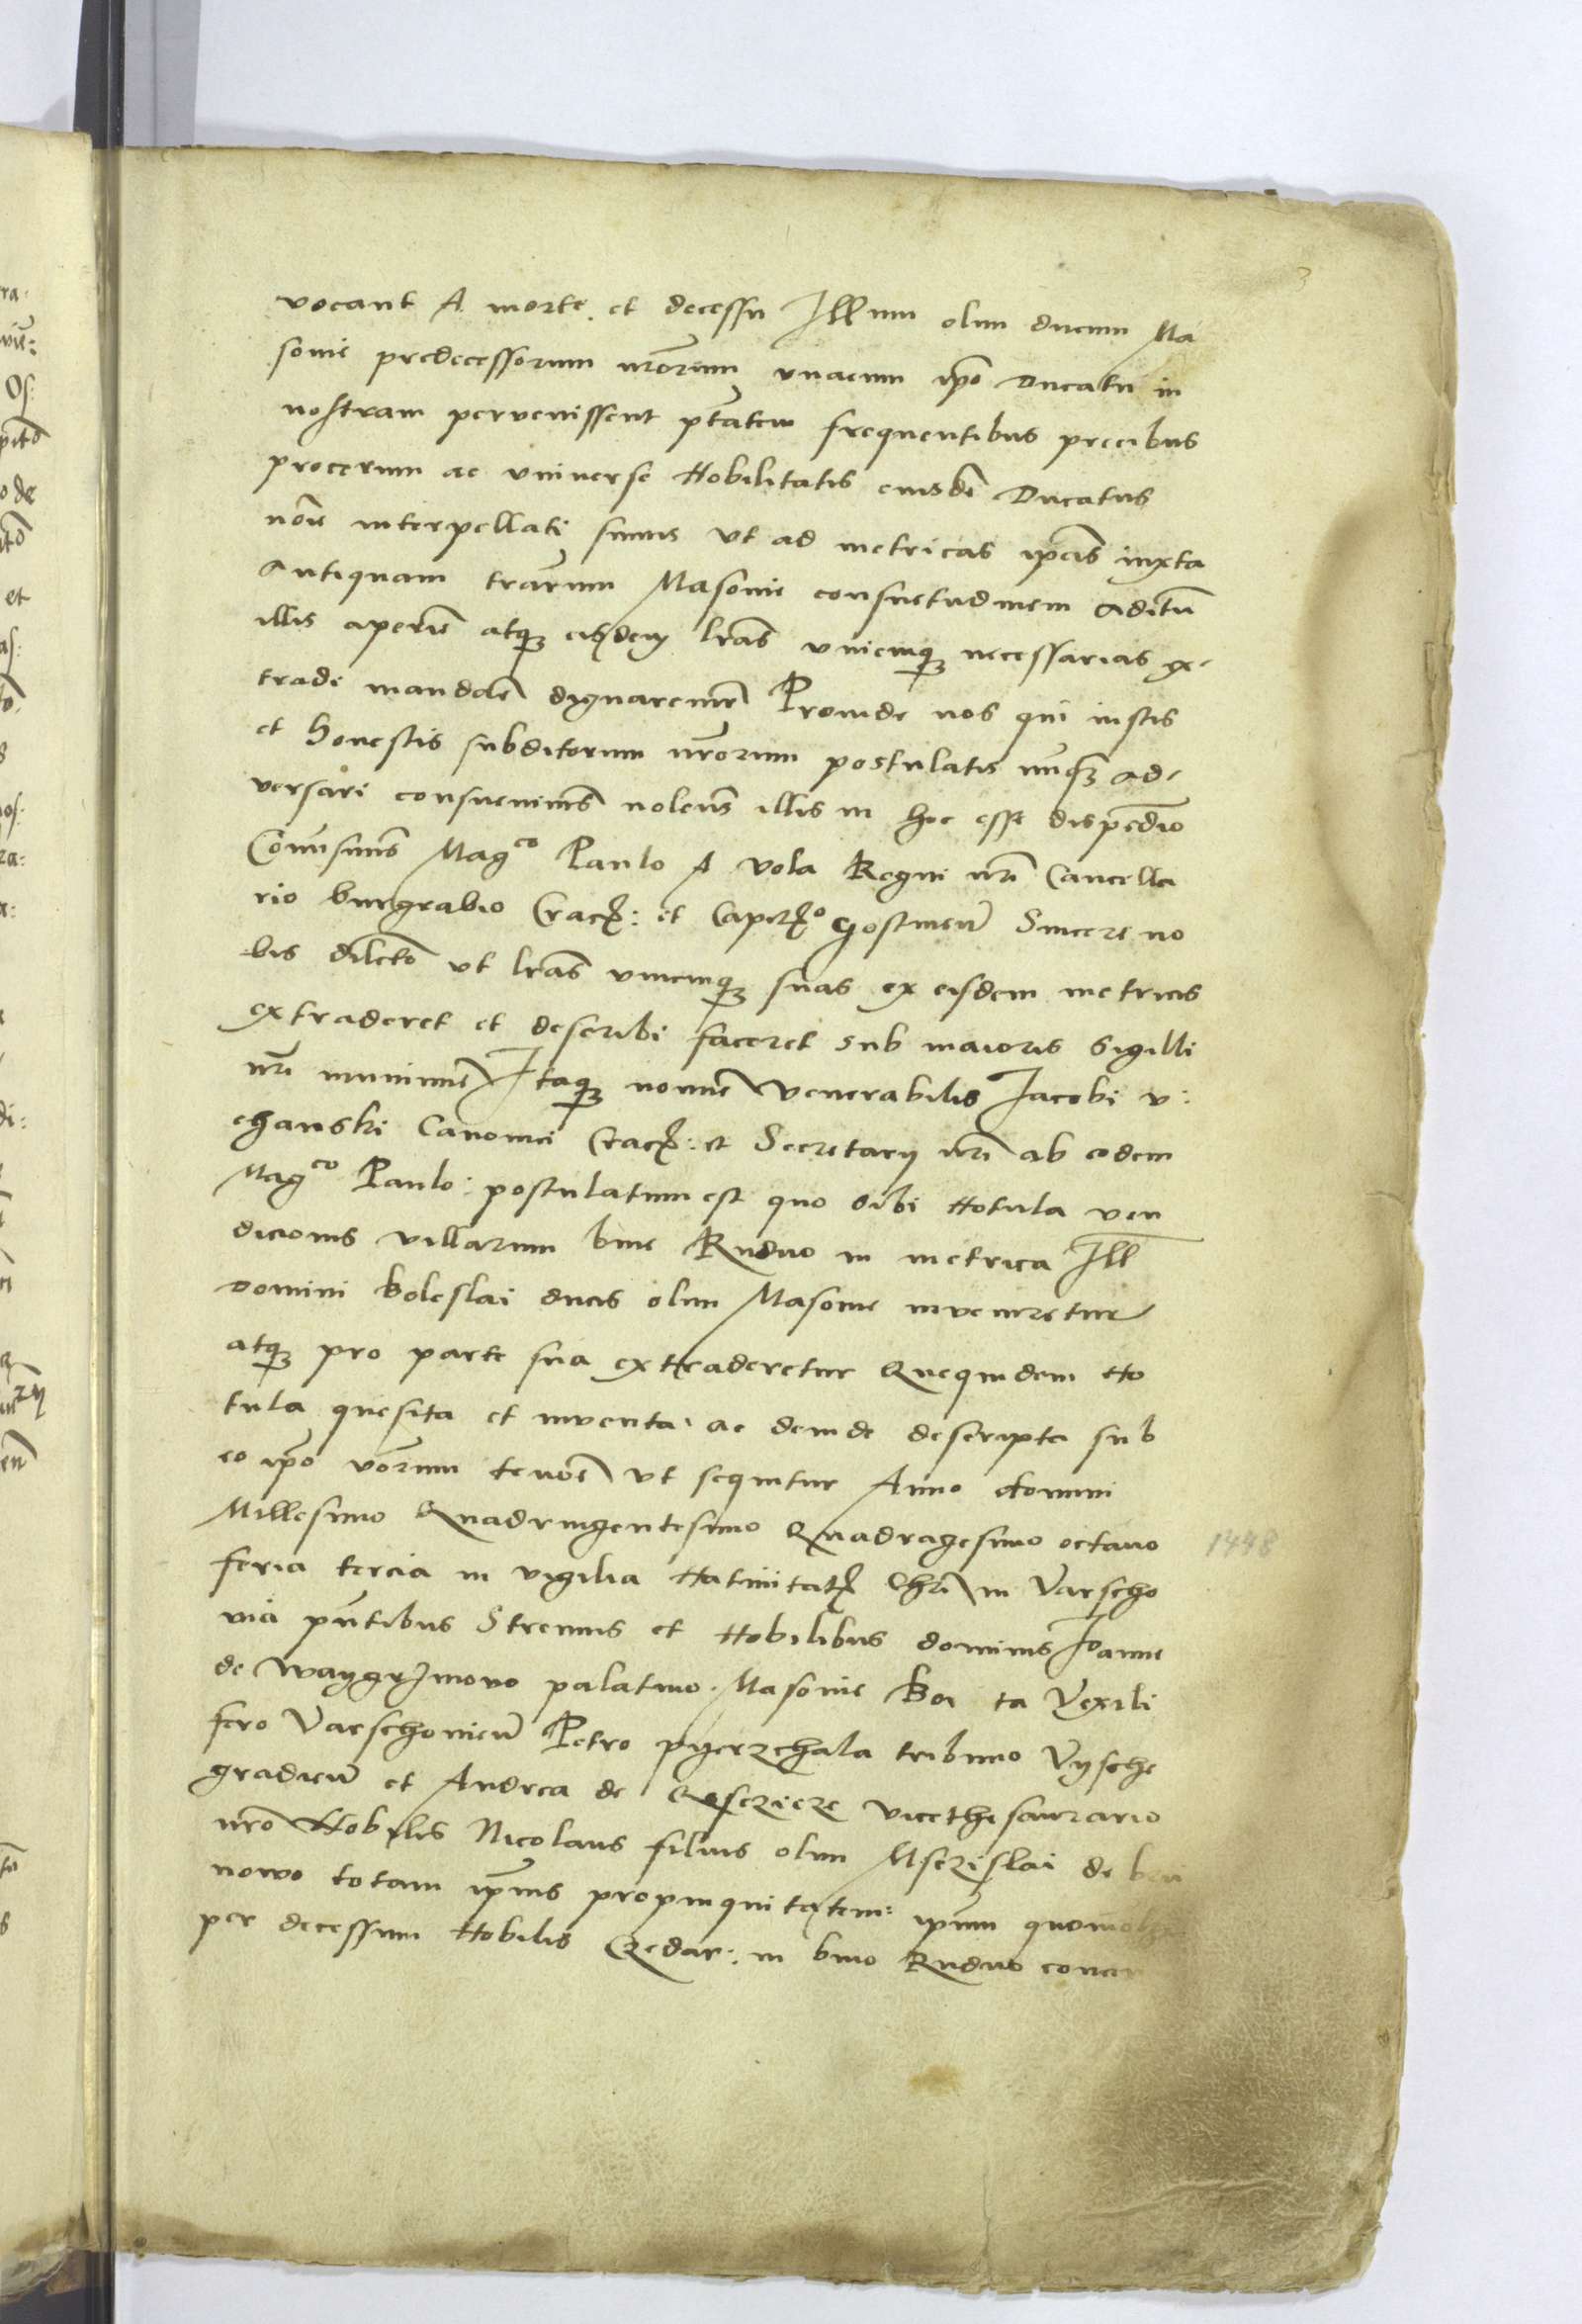 3
vocant A morte. et decessu Illum olim ducum Ma
sovie predecessorum nrorum unacum ipo Ducatu in
nostram pervenissent ptatem frequentibus precibus
procerum ac universe Nobilitatis eiusde Ducatus
noie interpellati sumus ut ad metricas ipas iuxta
Antiquam trarum Masovie consuetudinem aditu
illis aperire atq eisdem lras unicuiq necessarias ex-
tradi mandare dignaremur Proinde nos qui iustis
et honestis subditorum nrorum postulatis nusq ad-
versari consuevimus nolens illis in hoc esse dispedio
Comisimus Mag^co Paulo A vola Regni nri Cancella
rio burgrabio Crac: et Capit^o Gostinen Sincere no
bis dilcto ut lras unicuiq suas ex eisdem metricis
extraderet et describi faceret sub maioris Sigilli
nri munimine Itaq nomine Venerabilis Iacobi v:
chanski Canonici Crac: et Secretary nri ab eodem
Mag^co Paulo: postulatum est quo Sibi Notula ven
dicionis villarum bine Rudno in metrica Ill
Domini Boleslai ducis olim Masovie inveniretur
atq pro parte sua extraderetur Quequidem No
tula quesita et inventa. ac deinde descripta sub
eo ipo vorum tenore ut sequitur Anno domini
Millesimo Quadringentesimo Quadragesimo octavo
1448
feria tercia in vigilia Nativitat Chri in Varscho
via pntibus Strenuis et Nobilibus dominis Ioanne
de Waygrzinovo palatino. Masovie Bo ta Vexili
fero Varschovien Petro pyerzchala tribuno Vysche
gradien et Andrea de vicethesaurario
nro Nobilis Nicolaus filius olim Msczislai de
novo totam ipius propinquitatem: ipum
per decessum Nobilis Czedar: in bino Rudno